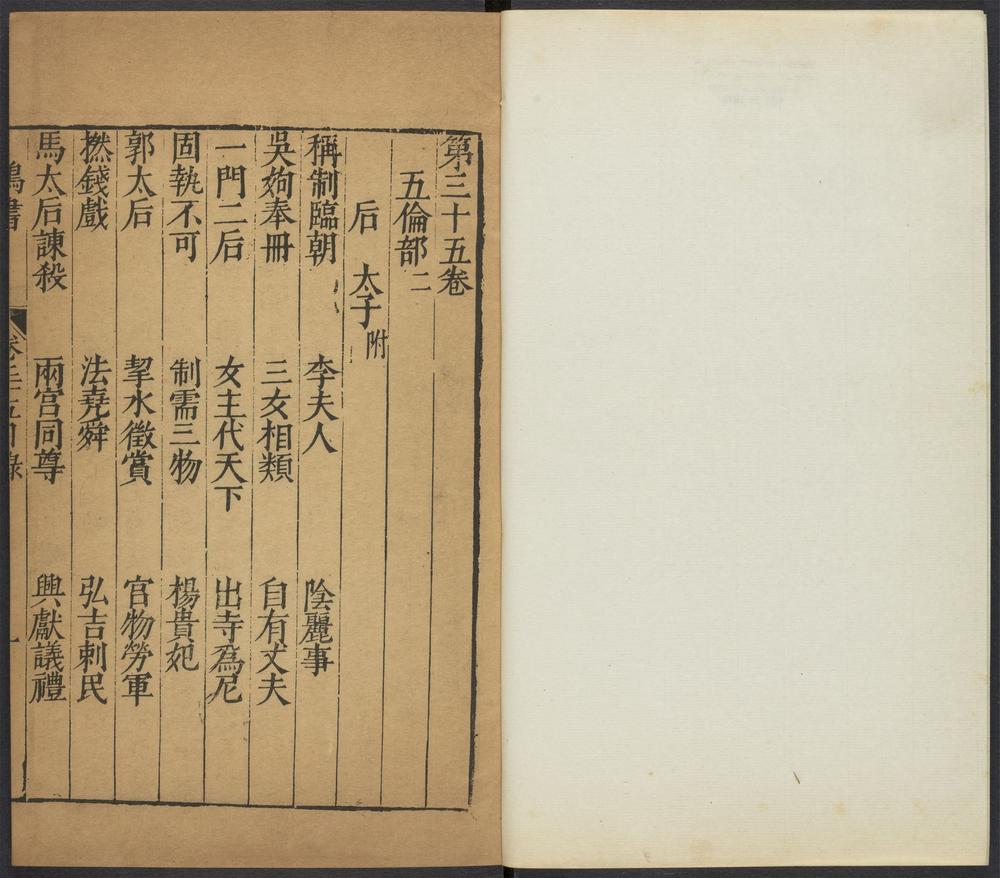 第三十五卷
五倫部二
后 太子附
稱制臨朝 李夫人 陰麗事
吳姁奉冊 三女相類 自有丈夫
一門二后 女主代天下 出寺爲尼
固執不可 制需三物 楊貴妃
郭太后 挈水徵賞 官物勞軍
撚錢戲 法堯舜 弘吉剌民
馬太后諫殺 兩宮同尊 興獻議禮